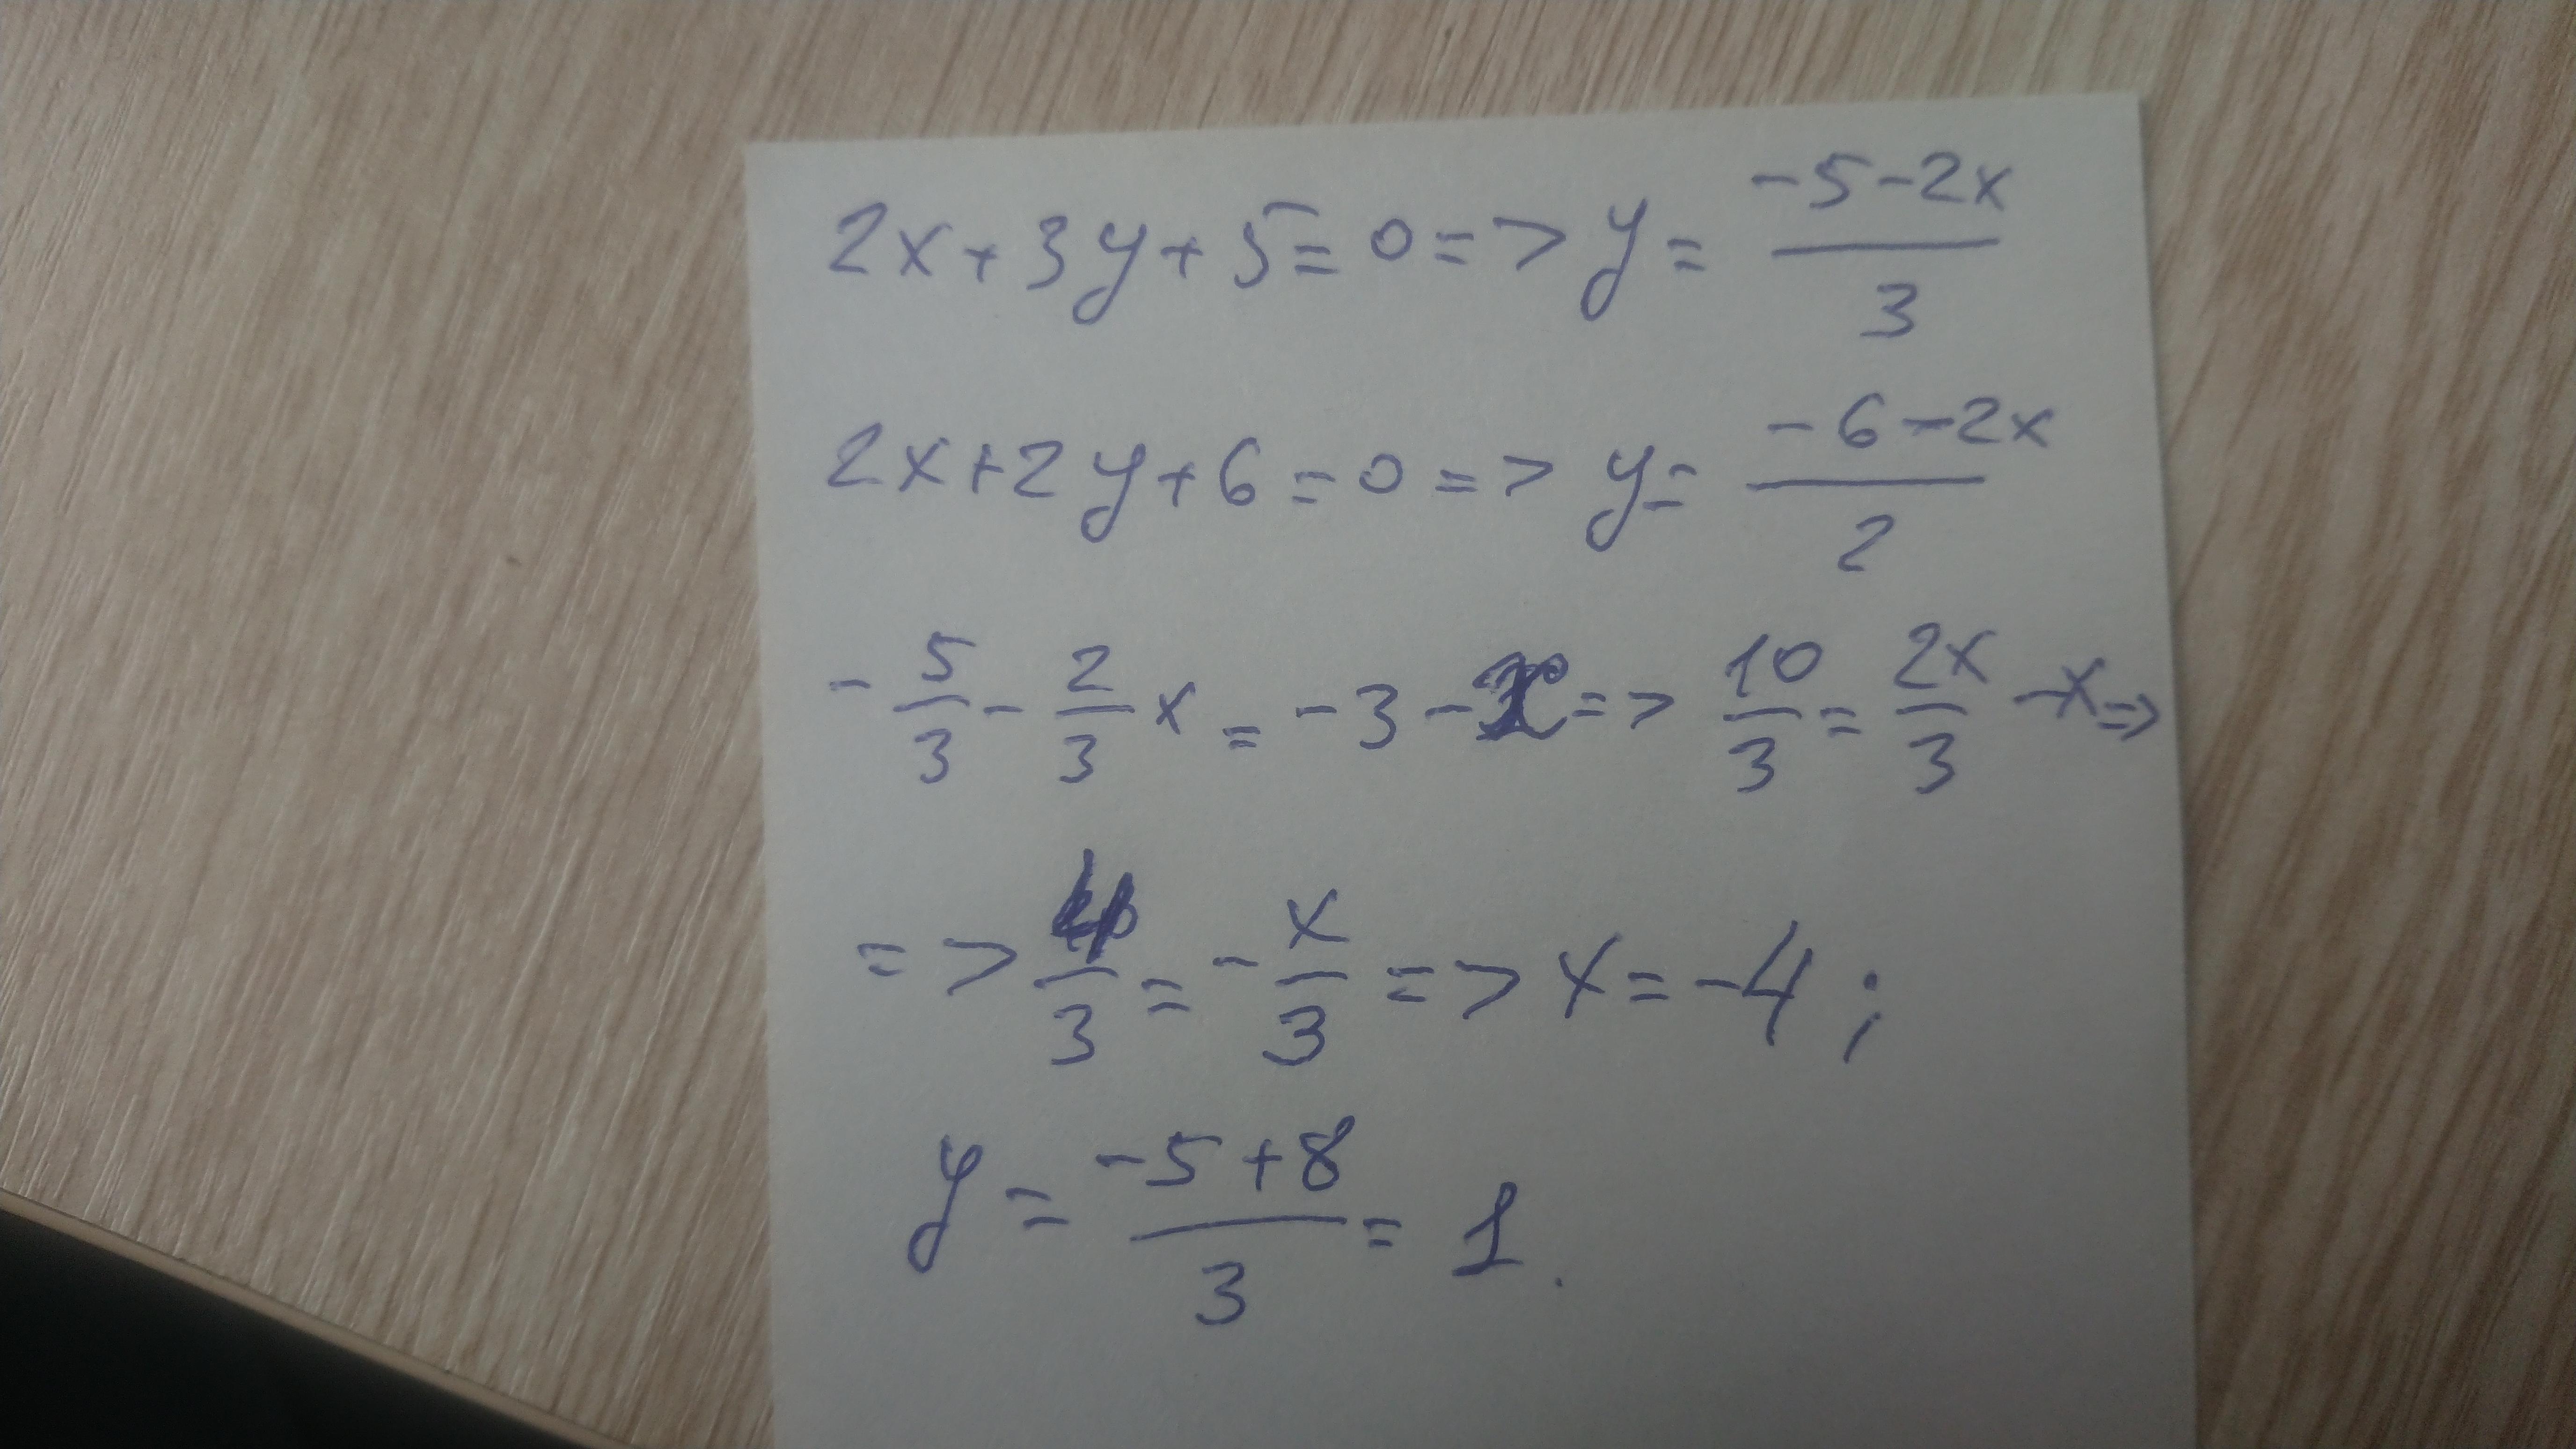 2x+3y+5=0=>y=(-5-2x)/3
2x+2y+6=0=>y=(-6-2x)/2
-5/3-2/3x=-3-x=>10/3=2x/3-x=>
=>4/3=-x/3=>x=-4;
y=(-5+8)/3=1.